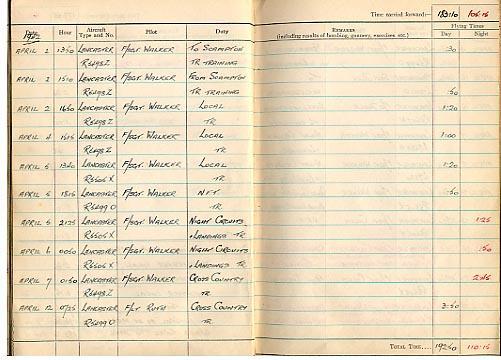 Time carried forward:— 183:10 106:15
Date Hour Aircraft Type and No. Pilot Duty REMARKS (including results of bombing, gunnery, exercises, etc.) Flying Times Day Night
APRIL 2 1350 LANCASTER F/SGT. WALKER TO SCAMPTON :30
R5493 Z TR TRAINING
APRIL 2 1510 LANCASTER F/SGT. WALKER FROM SCAMPTON
R5493 Z TR TRAINING :50
APRIL 2 1650 LANCASTER F/SGT. WALKER LOCAL 1:20
R5493 Z TR
APRIL 4 LANCASTER F/SGT. WALKER LOCAL 1:00
R5493 Z TR
APRIL 5 1340 LANCASTER F/SGT. WALKER LOCAL 1:20
R5505 X TR
APRIL 5 1815 LANCASTER F/SGT. WALKER N.F.T :50
R5499 O TR
APRIL 5 2135 LANCASTER F/SGT. WALKER NIGHT CIRCUITS 1:25
R5505 X + LANDINGS TR
APRIL 6 0050 LANCASTER F/SGT. WALKER NIGHT CIRCUITS :50
R5505 X + LANDINGS TR
APRIL 7 0150 LANCASTER F/SGT. WALKER CROSS COUNTRY 2:45
R5493 Z TR
APRIL 12 LANCASTER F/LT CROSS COUNTRY 3:50
R5499 O TR
TOTAL TIME.... 192:50 110:15